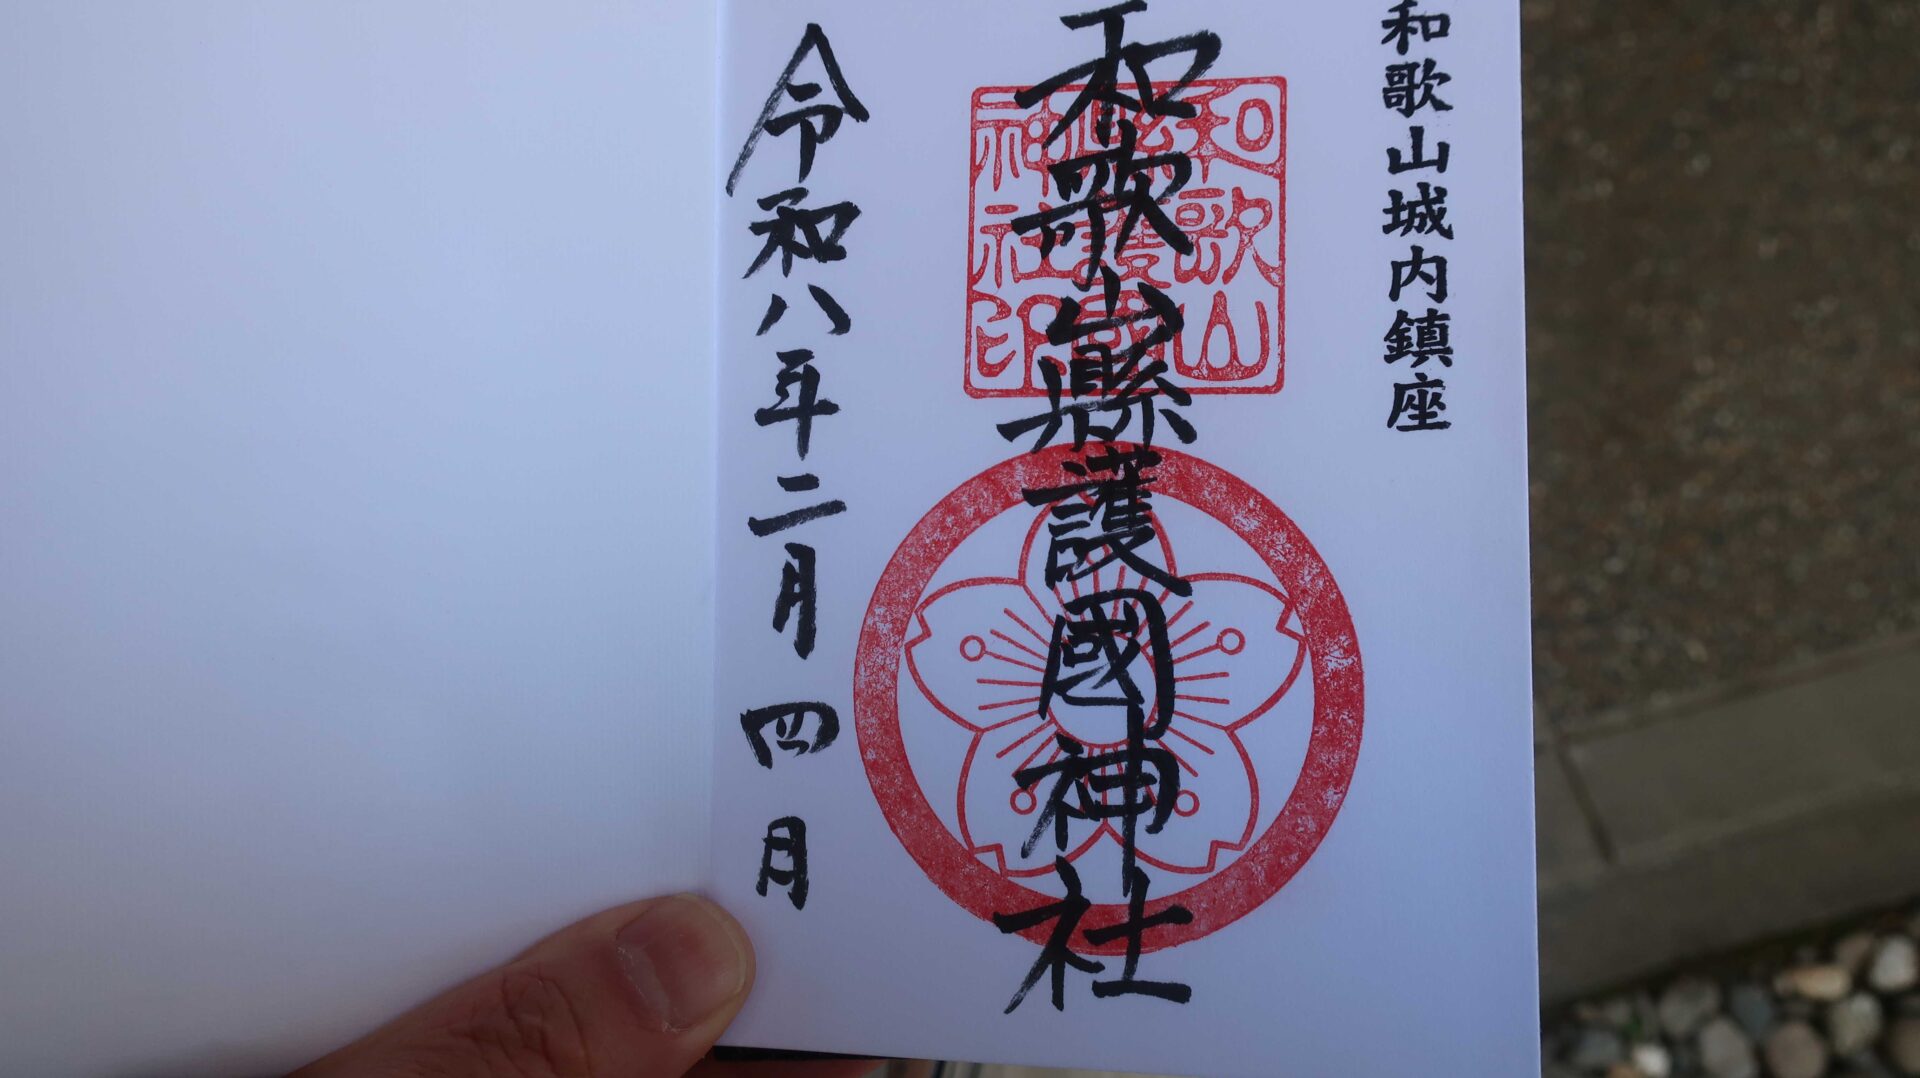 和歌山城内鎮座
和歌山縣護國神社
和歌山
縣護國
神社印
令和八年二月四月